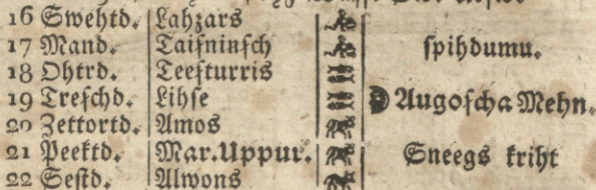 16 Swehtd. Lahzars
17 Mand. Taisninsch spihdumu.
18 Ohtrd. Teesturris
19 Treschd. Lihse Augoscha Mehn.
20 Zettortd. Amos
21 Peektd. Mar. Uppur. Sneegs kriht
22 Sestd. Alwons